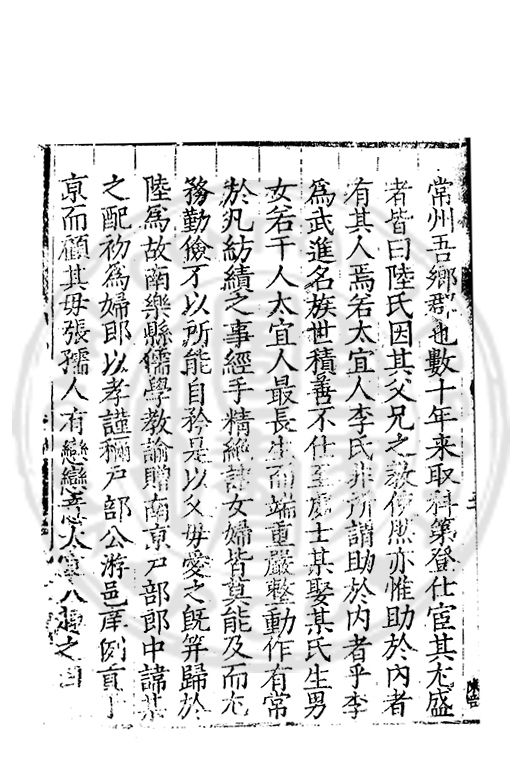 常州吾鄉郡也數十年来取科第登仕宦其尤盛
者皆曰陸氏因其父兄之教使然亦惟助於内者
有其人焉若太宜人李氏非所謂助於内者乎李
為武進名族世積善不仕至處士某娶某氏生男
女若干人太宜人最長生而端重嚴整動作有常
於凡紡績之事經手精絶諸女婦皆莫能及而尤
務勤儉不以所能自矜是以父母愛之既笄歸於
陸為故南樂縣儒學教諭贈南京戸部郎中諱某
之配初為婦即以孝謹稱戸部公游邑庠例貢
京而顧其母張孺人有戀戀意太宜人